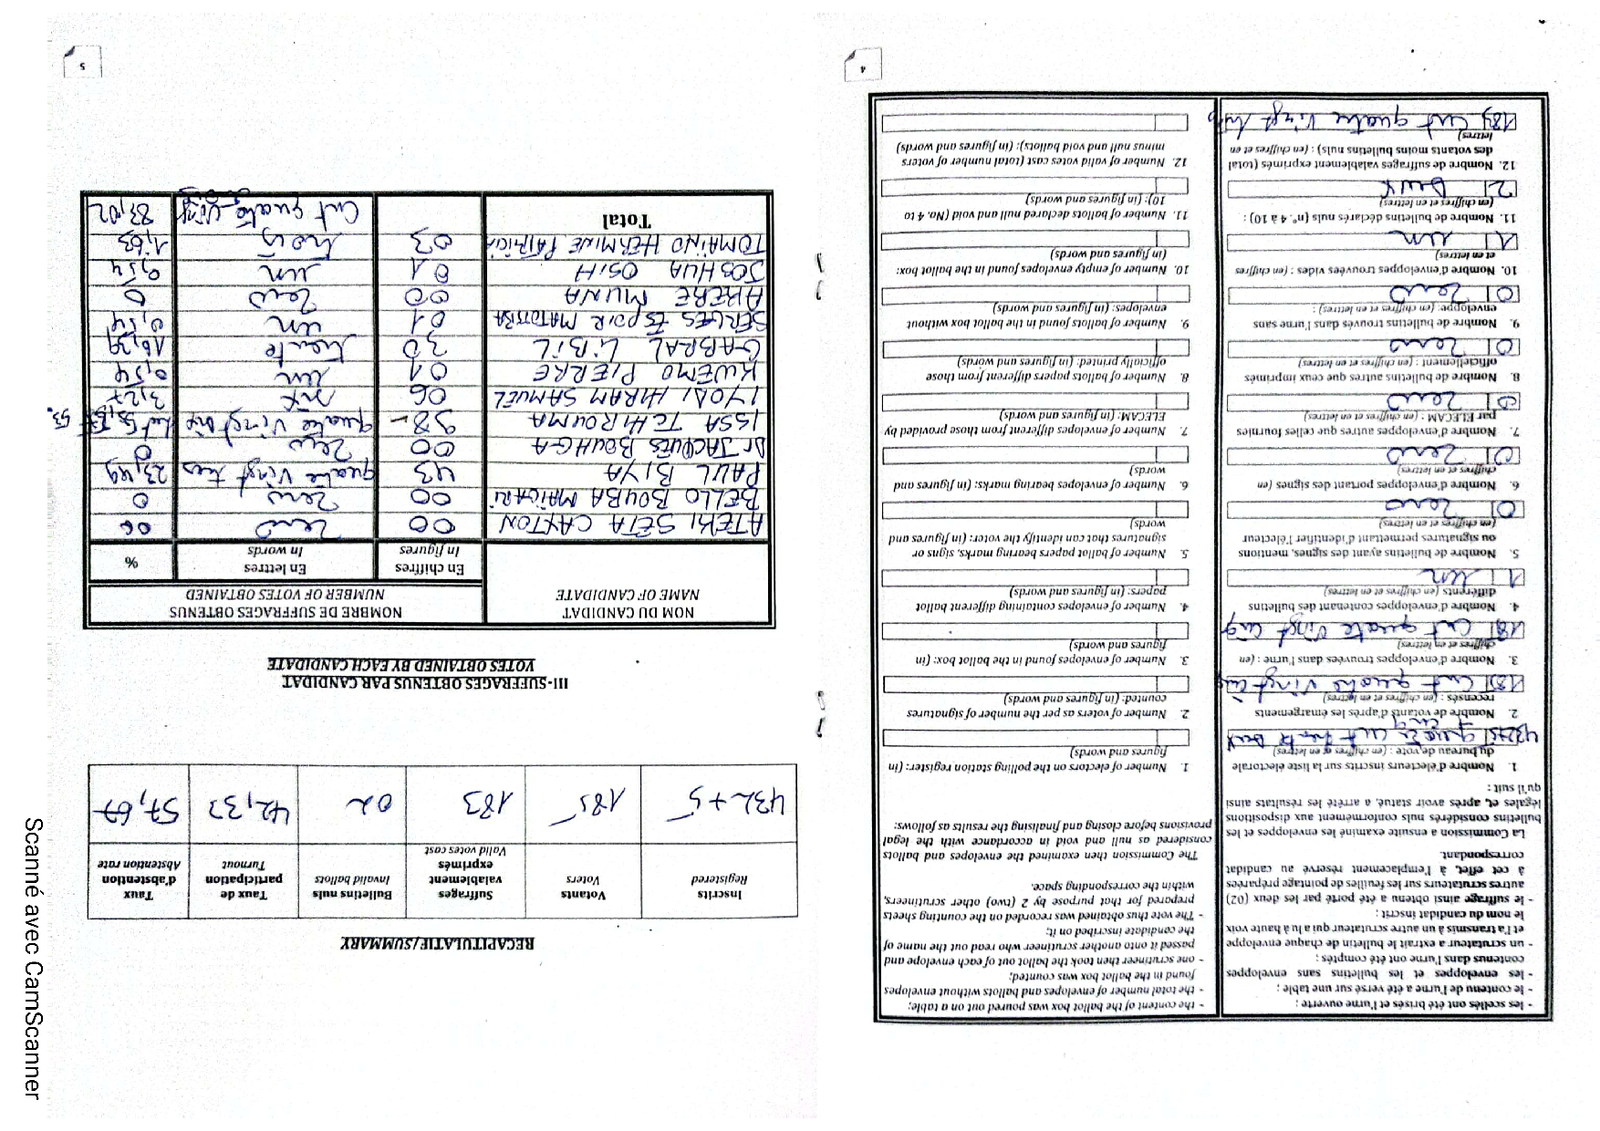 4
- les scellés ont été brisés et l'urne ouverte ;
- le contenu de l'urne a été versé sur une table ;
- les enveloppes et les bulletins sans enveloppes
contenus dans l'urne ont été comptés ;
- un scrutateur a extrait le bulletin de chaque enveloppe
et l'a transmis à un autre scrutateur qui a lu à haute voix
le nom du candidat inscrit ;
- le suffrage ainsi obtenu a été porté par les deux (02)
autres scrutateurs sur les feuilles de pointage préparées
à cet effet, à l'emplacement réservé au candidat
correspondant.
La Commission a ensuite examiné les enveloppes et les
bulletins considérés nuls conformément aux dispositions
légales et, après avoir statué, a arrêté les résultats ainsi
qu'il suit :
1. Nombre d'électeurs inscrits sur la liste électorale
du bureau de vote : (en chiffres et en lettres)
432+5 quatre cent trente deux
+ cinq
2. Nombre de votants d'après les émargements
recensés : (en chiffres et en lettres)
185 Cent quatre vingt cinq
3. Nombre d'enveloppes trouvées dans l'urne : (en
chiffres et en lettres)
185 Cent quatre vingt cinq
4. Nombre d'enveloppes contenant des bulletins
différents (en chiffres et en lettres)
1 un
5. Nombre de bulletins ayant des signes, mentions
ou signatures permettant d'identifier l'électeur
(en chiffres et en lettres)
0 zero
6. Nombre d'enveloppes portant des signes (en
chiffres et en lettres)
0 zero
7. Nombre d'enveloppes autres que celles fournies
par ELECAM : (en chiffres et en lettres)
0 zero
8. Nombre de bulletins autres que ceux imprimés
officiellement : (en chiffres et en lettres)
0 zero
9. Nombre de bulletins trouvés dans l'urne sans
enveloppe: (en chiffres et en lettres) :
0 zero
10. Nombre d'enveloppes trouvées vides : (en chiffres
et en lettres)
1 un
11. Nombre de bulletins déclarés nuls (n°. 4 à 10) :
(en chiffres et en lettres)
2 Deux
12. Nombre de suffrages valablement exprimés (total
des votants moins bulletins nuls) : (en chiffres et en
lettres)
183 Cent quatre vingt
- the content of the ballot box was poured out on a table;
- the total number of envelopes and ballots without envelopes
found in the ballot box was counted;
- one scrutineer then took the ballot out of each envelope and
passed it onto another scrutineer who read out the name of
the candidate inscribed on it;
- The vote thus obtained was recorded on the counting sheets
prepared for that purpose by 2 (two) other scrutineers,
within the corresponding space.
The Commission then examined the envelopes and ballots
considered as null and void in accordance with the legal
provisions before closing and finalising the results as follows:
1. Number of electors on the polling station register: (in
figures and words)
2. Number of voters as per the number of signatures
counted: (in figures and words)
3. Number of envelopes found in the ballot box: (in
figures and words)
4. Number of envelopes containing different ballot
papers: (in figures and words)
5. Number of ballot papers bearing marks, signs or
signatures that can identify the voter: (in figures and
words)
6. Number of envelopes bearing marks: (in figures and
words)
7. Number of envelopes different from those provided by
ELECAM: (in figures and words)
8. Number of ballots papers different from those
officially printed: (in figures and words)
9. Number of ballots found in the ballot box without
envelopes: (in figures and words)
10. Number of empty envelopes found in the ballot box:
(in figures and words)
11. Number of ballots declared null and void (No. 4 to
10): (in figures and words)
12. Number of valid votes cast (total number of voters
minus null and void ballots): (in figures and words)
5
RECAPITULATIF/SUMMARY
Inscrits Registered | Votants Voters | Suffrages valablement exprimés Valid votes cast | Bulletins nuls Invalid ballots | Taux de participation Turnout | Taux d'abstention Abstention rate
432+5 | 185 | 183 | 02 | 42,33 | 57,67
III-SUFFRAGES OBTENUS PAR CANDIDAT
VOTES OBTAINED BY EACH CANDIDATE
NOM DU CANDIDAT NAME OF CANDIDATE | NOMBRE DE SUFFRAGES OBTENUS NUMBER OF VOTES OBTAINED
En chiffres In figures | En lettres In words | %
ATEKI SETA CAXTON 00 zero 00
BELLO BOUBA MAÏGARI 00 zero 0
PAUL BIYA 43 quate vingt trois 23,49
Dr JACQUES BOUHGA 00 zero 0
ISSA TCHIROUMA 98 - quatre vingt dix huit 53,
IYODI HIRAM SAMUEL 06 six 3,27
KWEMO PIERRE 01 un 0,54
CABRAL LIBII 30 trente 16,39
SERGES ESPOIR MATOMBA 01 un 0,54
AKERE MUNA 00 zero 0
JOSHUA OSIH 01 un 0,54
TOMAÏNO HERMINE PATRICIA 03 trois 1,63
Total Cent quatre vingt
Scanné avec CamScanner